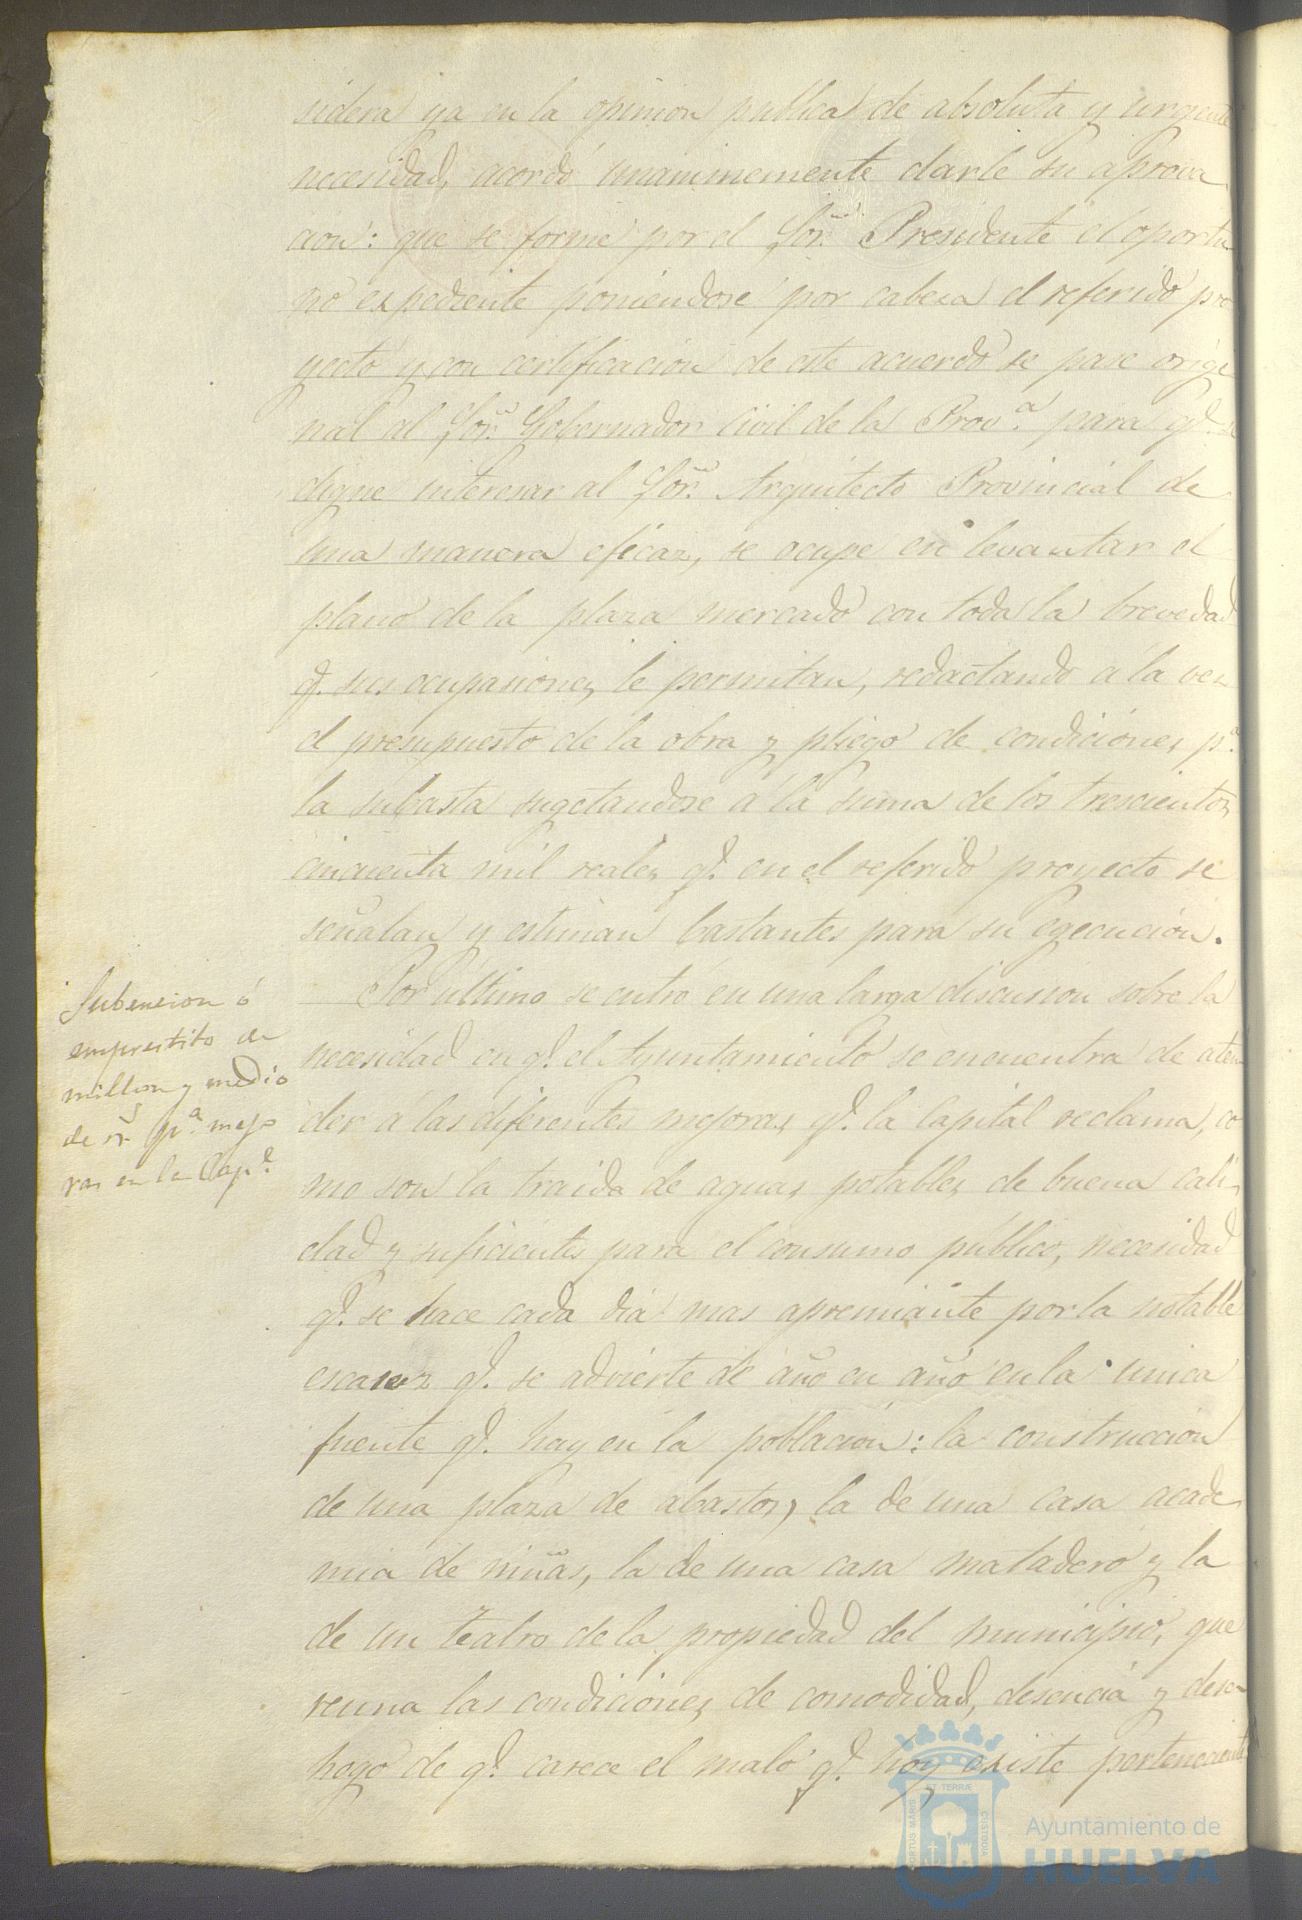 sidera ya en la opinion publica de absoluta y urgente
necesidad, acordó unanimemente darle su aprova
cion: que se forme por el Sor. Presidente el oportu
no expediente poniendose por cabeza el referido pro
yecto y con certificacion de este acuerdo se pase origi
nal al Sor. Gobernador Civil de la Prov.ª para q.e se
digne interesar al Sor. Arquitecto Provincial de
una manera eficaz, se ocupe en levantar el
plano de la plaza mercado con toda la brevedad
q.e sus ocupasiones le permitan, redactando á la vez
el presupuesto de la obra y pliego de condiciones p.ª
la subasta sugetandose á la suma de los trescientos
cincuenta mil reales q.e en el referido proyecto se
señalan y estiman bastantes para su egecución.
Subension ó
emprestito de
millon y medio
de rs p.ª mejo
ras en la Cap.l
Por último se entró en una larga discusion sobre la
necesidad en q.e el Ayuntamiento se encuentra de aten
der á las diferentes mejoras q.e la Capital reclama, co
mo son la traida de aguas potables de buena cali
dad y suficientes para el consumo público, necesidad
q.e se hace cada dia mas apremiante por la notable
escasez q.e se advierte de año en año en la unica
fuente q.e hay en la poblacion: la construccion
de una plaza de abastos, la de una casa acade
mia de niñas, la de una casa matadero y la
de un teatro de la propiedad del municipio, que
reuna las condiciones de comodidad, desencia y desa
hogo de q.e carece el malo q.e hoy existe perteneciente
PORTUS MARIS ET TERRÆ CUSTODIA
Ayuntamiento de
HUELVA